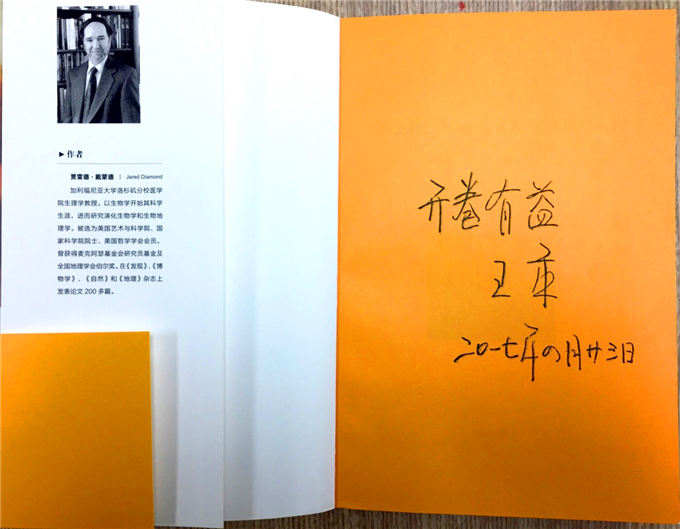 ▶作者
贾雷德·戴蒙德 | Jared Diamond
加利福尼亚大学洛杉矶分校医学
院生理学教授。以生物学开始其科学
生涯，进而研究演化生物学和生物地
理学。被选为美国艺术与科学院、国
家科学院院士、美国哲学学会会员。
曾获得麦克阿瑟基金会研究员基金及
全国地理学会伯尔奖。在《发现》、《博
物学》、《自然》和《地理》杂志上
发表论文200多篇。
开卷有益
王
二〇一七年四月廿三日